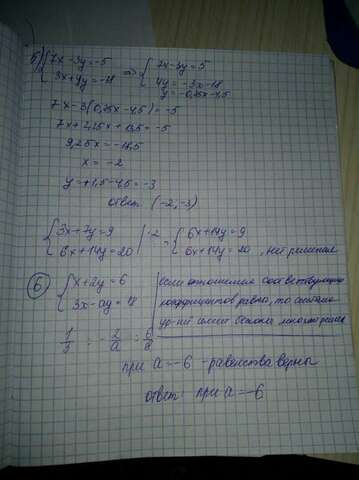 5) { 7x - 3y = -5 => { 7x - 3y = 5
3x + 4y = -18 4y = -3x - 18
y = -0,75x - 4,5
7x - 3(0,75x - 4,5) = -5
7x + 2,25x + 13,5 = -5
9,25x = -18,5
x = -2
y = +1,5 - 4,5 = -3
ответ (-2; -3)
{ 3x + 7y = 9 | ·2 = { 6x + 14y = 9
6x + 14y = 20 6x + 14y = 20 , нет решения
6 { x + 2y = 6
3x - ay = 18
если отношения соответствующих
коэффициентов равны, то система
ур-ний имеет беско множ решен
1/3 : -2/a : 6/8
при a = -6 - равенства верны
ответ: при a = -6